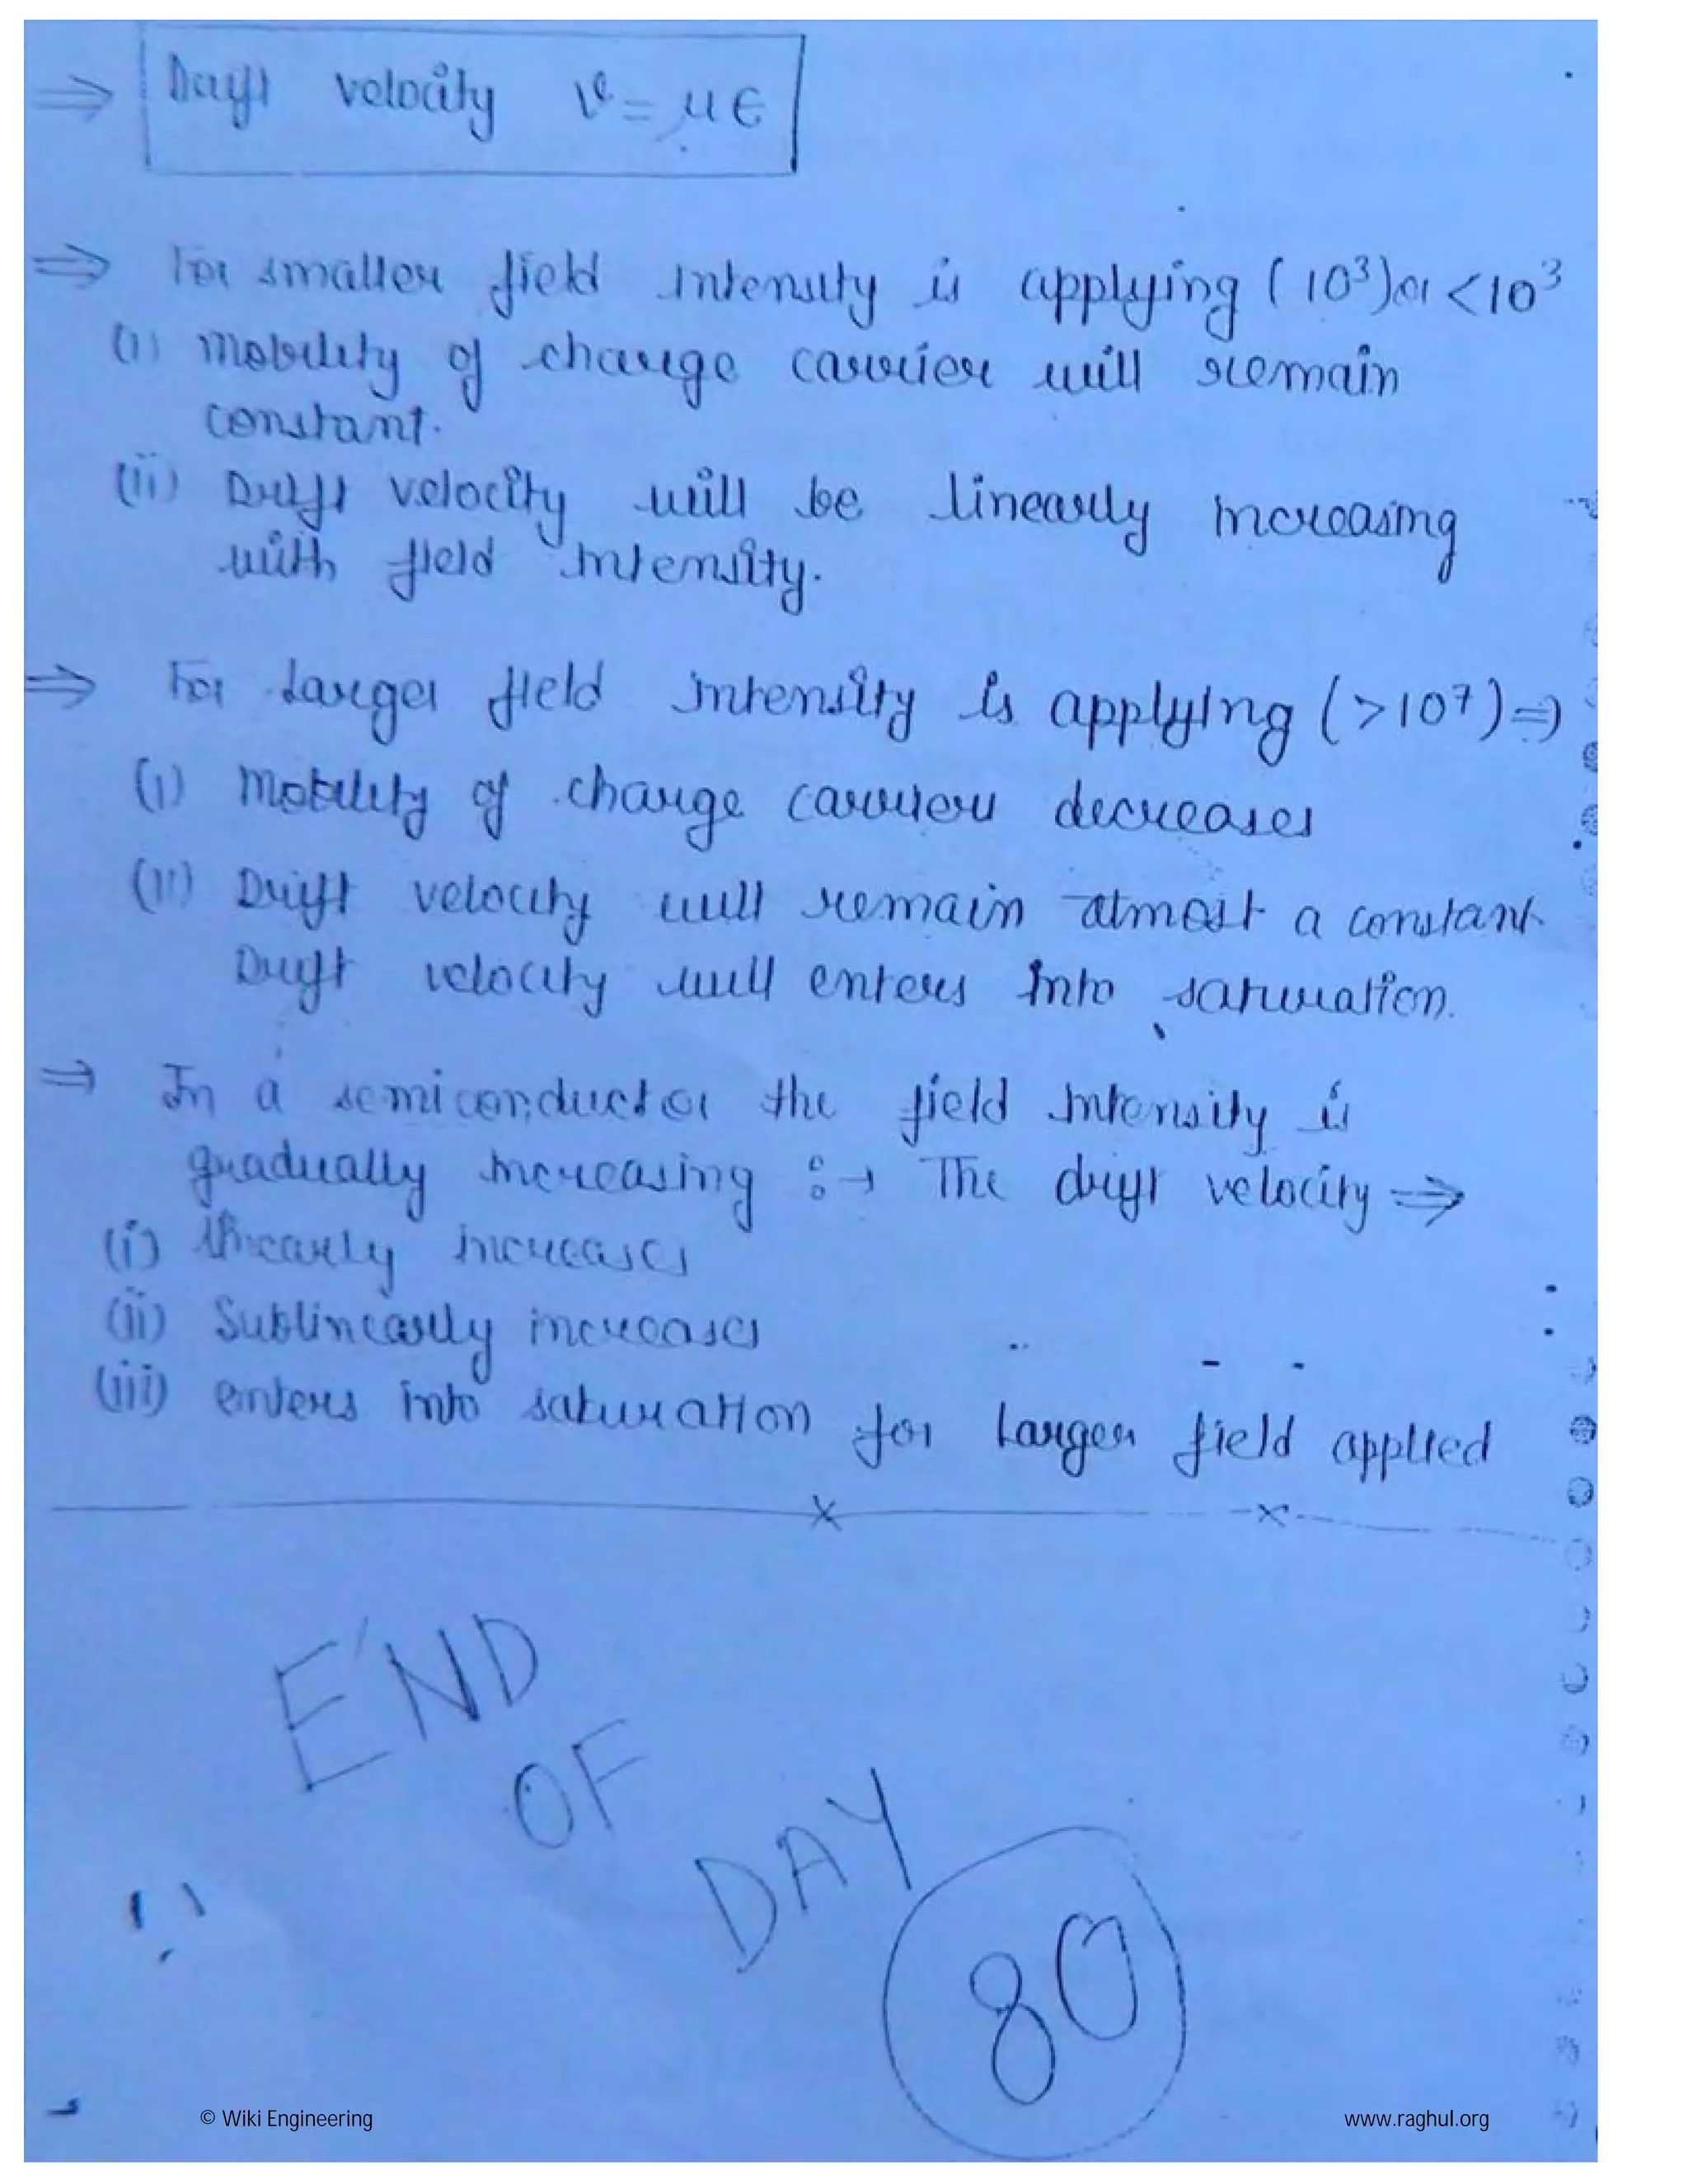 ⇒ Drift velocity v = μE
⇒ For smaller field intensity is applying (10³) or <10³
(i) Mobility of charge carrier will remain
constant.
(ii) Drift velocity will be linearly increasing
with field intensity.
⇒ For Larger field intensity is applying (>10⁷) ⇒
(i) Mobility of charge carrier decreases
(ii) Drift velocity will remain almost a constant
Drift velocity will enters into saturation.
⇒ In a semiconductor the field intensity is
gradually increasing :→ The drift velocity ⇒
(i) linearly increases
(ii) Sublinearly increases
(iii) enters into saturation for Larger field applied
END
OF
DAY
80
© Wiki Engineering www.raghul.org